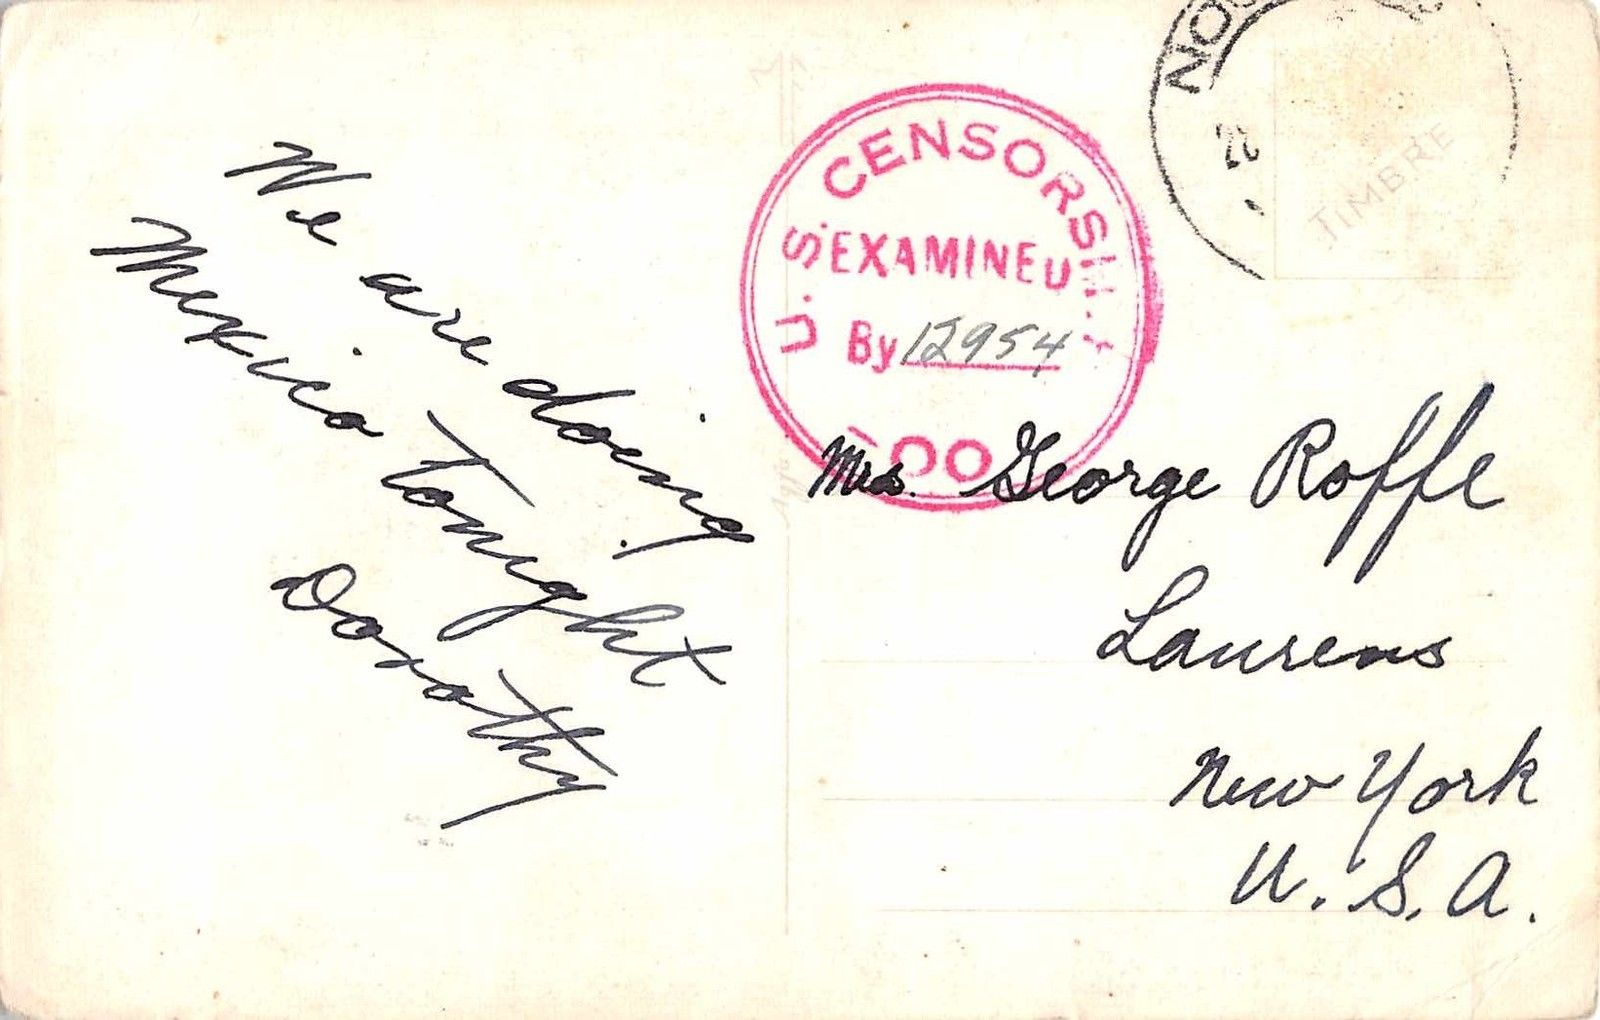 We are doing
Mexico tonight.
Dorothy
U.S. CENSORSHIP
EXAMINED
By 12954
TIMBRE
22
Mrs. George Roffe
Laurens
New York
U.S.A.